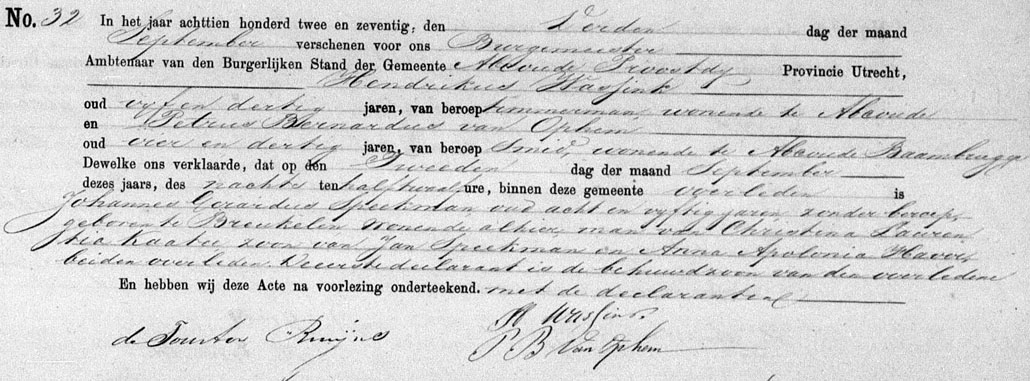 No. 32 In het jaar achttien honderd twee en zeventig, den Derden dag der maand
September verschenen voor ons Burgemeister
Ambtenaar van den Burgerlijken Stand der Gemeente Abcoude Proostdy Provincie Utrecht,
Hendrikus Wassink
oud vyf en dertig jaren, van beroep timmerman, wonende te Abcoude
en Petrus Bernardus van Ophem
oud vier en dertig jaren, van beroep Smid, wonende te Abcoude Baambrugge
Dewelke ons verklaarde, dat op den Tweeden dag der maand September
dezes jaars, des nachts ten half twaalf ure, binnen deze gemeente overleden is
Johannes Gerardus Speekman oud acht en vyftig jaren zonder beroep,
geboren te Breukelen wonende alhier, man van Christina Lauren
tia Kaatee zoon van Jan Speekman en Anna Apolonia
beiden overleden. De eerste declarant is de behuwdzoon van den overledene
En hebben wij deze Acte na voorlezing onderteekend. met de declaranten
H Wassink.
de Ruijs
P B Van Ophem